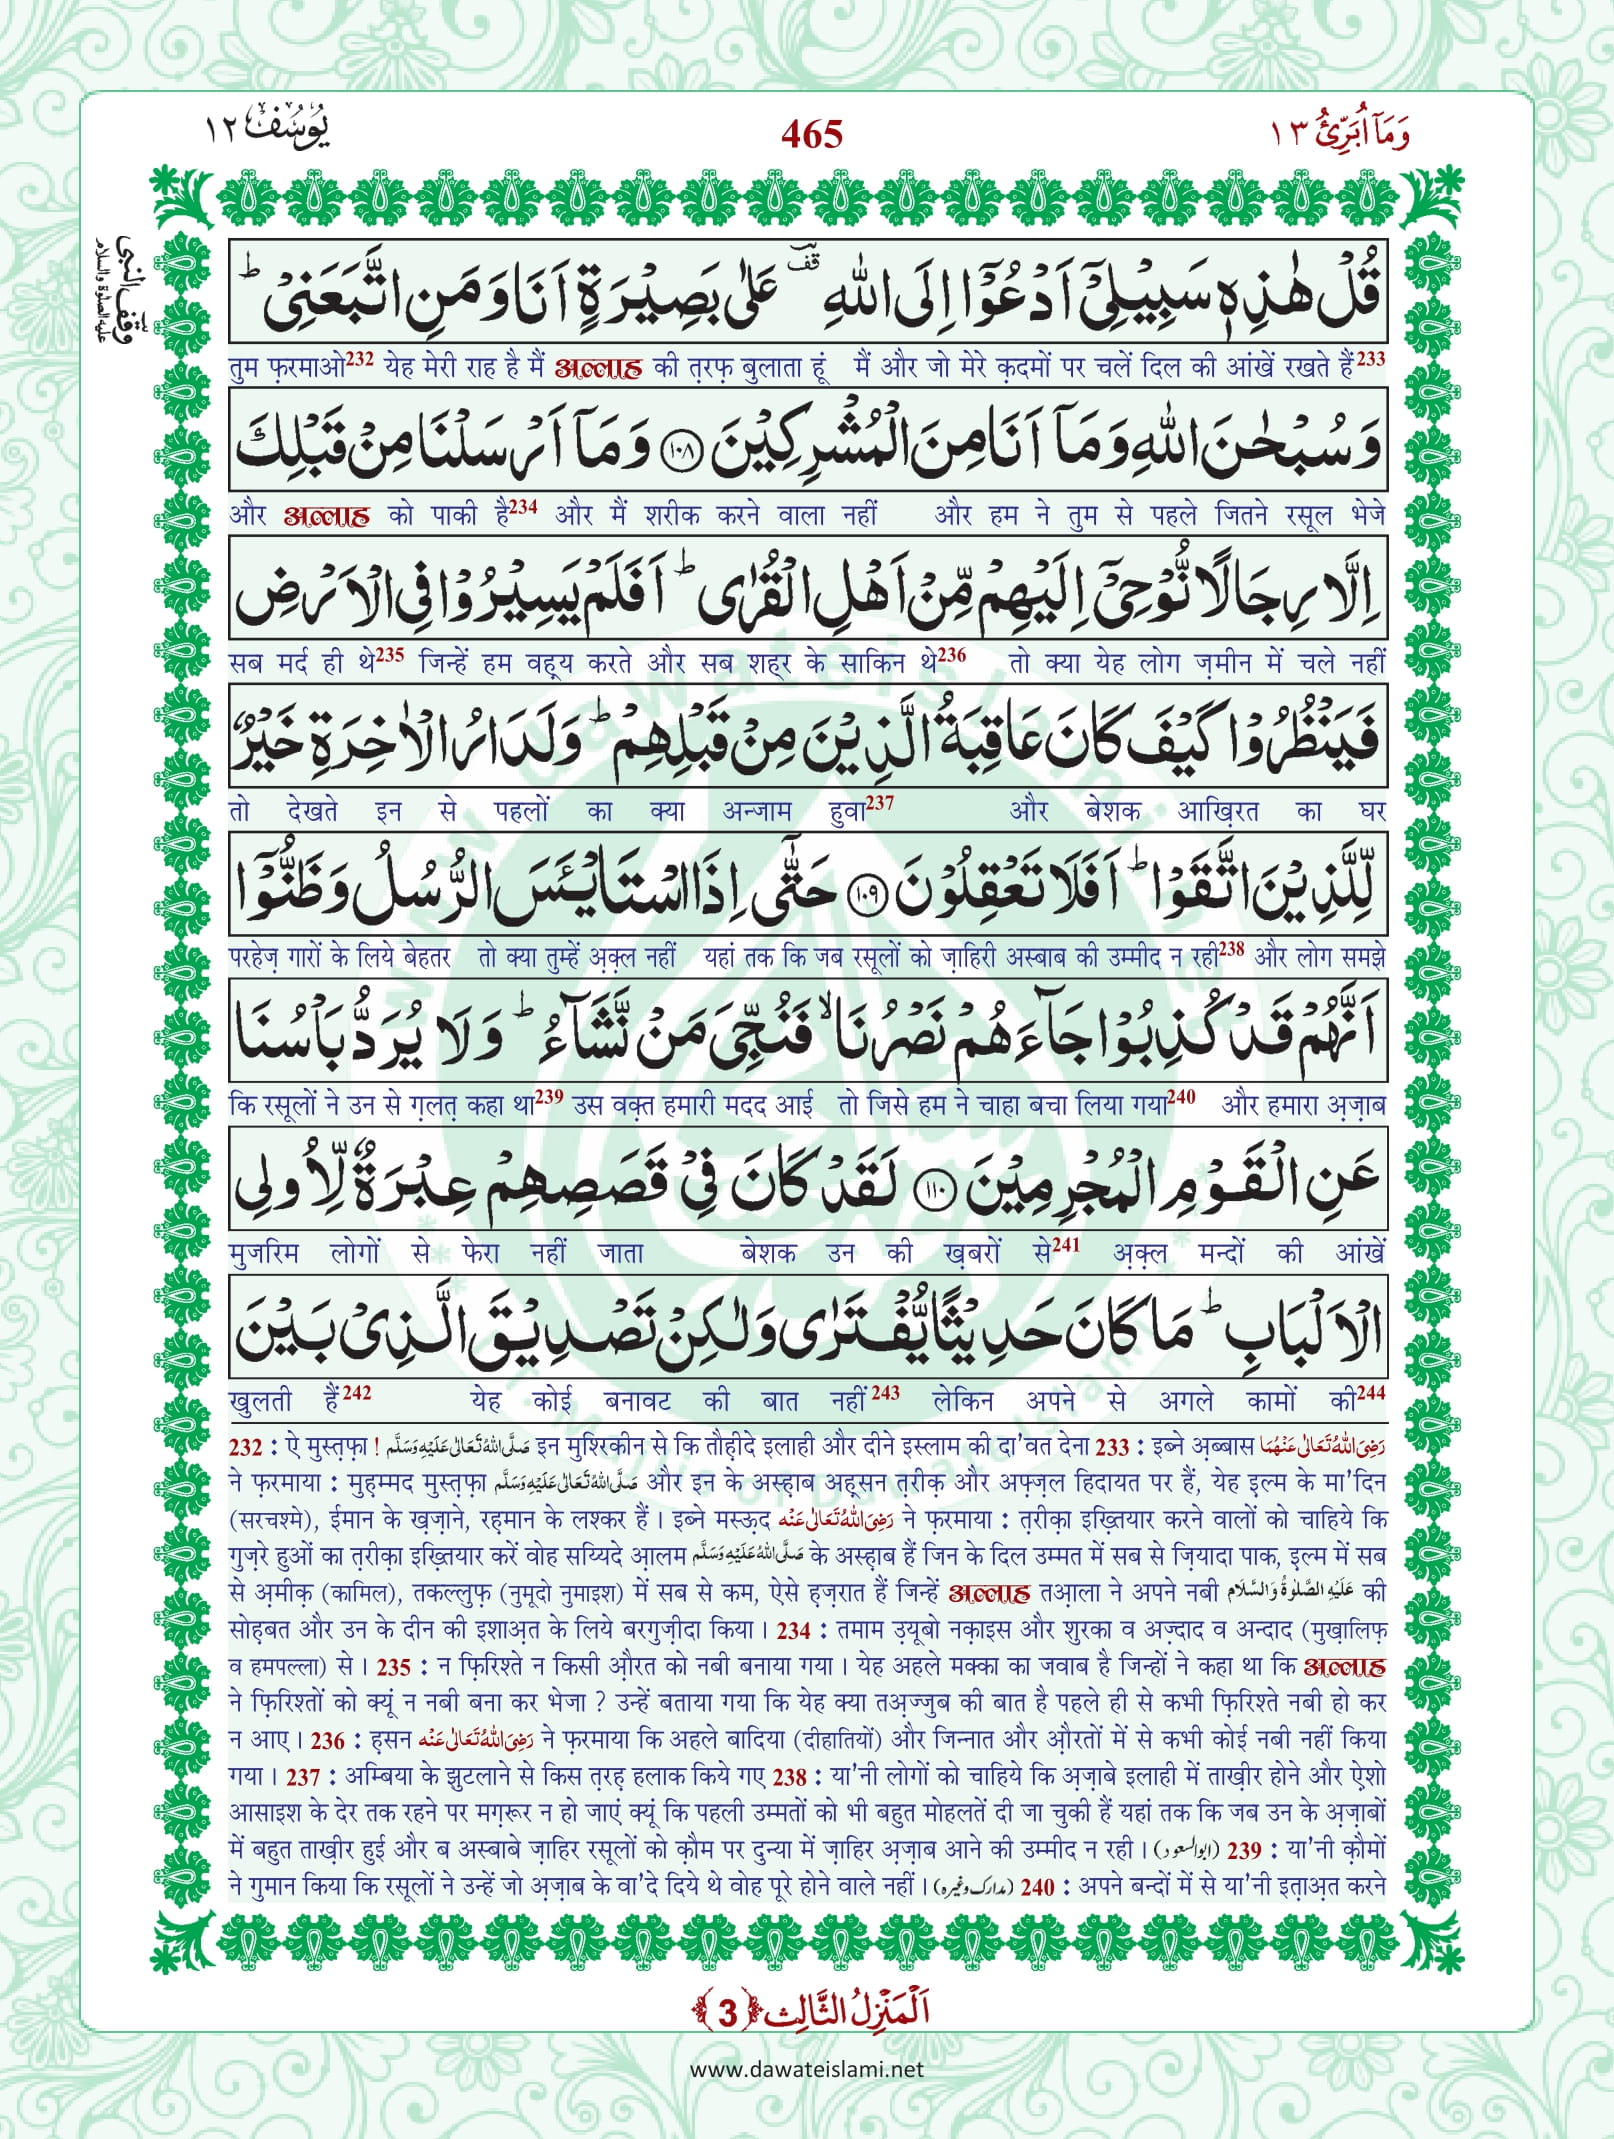 وَمَاۤ اُبَرِّئُ ١٣
465
یُوْسُف ١٢
وقف النبی علیہ الصلوۃ والسلام
قُلْ هٰذِهٖ سَبِیْلِیْۤ اَدْعُوْۤا اِلَى اللّٰهِ ﱘ عَلٰى بَصِیْرَةٍ اَنَا وَ مَنِ اتَّبَعَنِیْ ؕ
तुम फ़रमाओ232 येह मेरी राह है मैं अल्लाह की त़रफ़ बुलाता हूं मैं और जो मेरे क़दमों पर चलें दिल की आंखें रखते हैं233
وَ سُبْحٰنَ اللّٰهِ وَ مَاۤ اَنَا مِنَ الْمُشْرِكِیْنَ ﴿۱۰۸﴾ وَ مَاۤ اَرْسَلْنَا مِنْ قَبْلِكَ
और अल्लाह को पाकी है234 और मैं शरीक करने वाला नहीं और हम ने तुम से पहले जितने रसूल भेजे
اِلَّا رِجَالًا نُّوْحِیْۤ اِلَیْهِمْ مِّنْ اَهْلِ الْقُرٰى ؕ اَفَلَمْ یَسِیْرُوْا فِی الْاَرْضِ
सब मर्द ही थे235 जिन्हें हम वह़्य करते और सब शह्‌र के साकिन थे236 तो क्या येह लोग ज़मीन में चले नहीं
فَیَنْظُرُوْا كَیْفَ كَانَ عَاقِبَةُ الَّذِیْنَ مِنْ قَبْلِهِمْ ؕ وَ لَدَارُ الْاٰخِرَةِ خَیْرٌ
तो देखते इन से पहलों का क्या अन्जाम हुवा237 और बेशक आख़िरत का घर
لِّلَّذِیْنَ اتَّقَوْا ؕ اَفَلَا تَعْقِلُوْنَ ﴿۱۰۹﴾ حَتّٰۤى اِذَا اسْتَایْــٴَـسَ الرُّسُلُ وَ ظَنُّوْۤا
परहेज़ गारों के लिये बेहतर तो क्या तुम्हें अ़क़्ल नहीं यहां तक कि जब रसूलों को ज़ाहिरी अस्बाब की उम्मीद न रही238 और लोग समझे
اَنَّهُمْ قَدْ كُذِبُوْا جَآءَهُمْ نَصْرُنَا ۙ فَنُجِّیَ مَنْ نَّشَآءُ ؕ وَ لَا یُرَدُّ بَاْسُنَا
कि रसूलों ने उन से ग़लत़ कहा था239 उस वक़्त हमारी मदद आई तो जिसे हम ने चाहा बचा लिया गया240 और हमारा अ़ज़ाब
عَنِ الْقَوْمِ الْمُجْرِمِیْنَ ﴿۱۱۰﴾ لَقَدْ كَانَ فِیْ قَصَصِهِمْ عِبْرَةٌ لِّاُولِی
मुजरिम लोगों से फेरा नहीं जाता बेशक उन की ख़बरों से241 अ़क़्ल मन्दों की आंखें
الْاَلْبَابِ ؕ مَا كَانَ حَدِیْثًا یُّفْتَرٰى وَ لٰكِنْ تَصْدِیْقَ الَّذِیْ بَیْنَ
खुलती हैं242 येह कोई बनावट की बात नहीं243 लेकिन अपने से अगले कामों की244
232 : ऐ मुस्त़फ़ा ! صَلَّی اللّٰہُ تَعَالٰی عَلَیْہِ وَسَلَّم इन मुश्रिकीन से कि तौह़ीदे इलाही और दीने इस्लाम की दा'वत देना 233 : इब्ने अ़ब्बास رَضِیَ اللّٰہُ تَعَالٰی عَنْہُمَا
ने फ़रमाया : मुह़म्मद मुस्त़फ़ा صَلَّی اللّٰہُ تَعَالٰی عَلَیْہِ وَسَلَّم और इन के अस्ह़ाब अह़्सन त़रीक़ और अफ़्ज़ल हिदायत पर हैं, येह इ़ल्म के मा'दिन
(सरचश्मे), ईमान के ख़ज़ाने, रह़मान के लश्कर हैं । इब्ने मस्ऊ़द رَضِیَ اللّٰہُ تَعَالٰی عَنْہ ने फ़रमाया : त़रीक़ा इख़्तियार करने वालों को चाहिये कि
गुज़रे हुओं का त़रीक़ा इख़्तियार करें वोह सय्यिदे आ़लम صَلَّی اللّٰہُ عَلَیْہِ وَسَلَّم के अस्ह़ाब हैं जिन के दिल उम्मत में सब से ज़ियादा पाक, इ़ल्म में सब
से अ़मीक़ (कामिल), तकल्लुफ़ (नुमूदो नुमाइश) में सब से कम, ऐसे ह़ज़रात हैं जिन्हें अल्लाह तआ़ला ने अपने नबी عَلَیْہِ الصَّلٰوۃُ وَالسَّلَام की
सोह़बत और उन के दीन की इशाअ़त के लिये बरगुज़ीदा किया । 234 : तमाम उ़यूबो नक़ाइस और शुरका व अज़्दाद व अन्दाद (मुख़ालिफ़
व हमपल्ला) से । 235 : न फ़िरिश्ते न किसी औ़रत को नबी बनाया गया । येह अहले मक्का का जवाब है जिन्हों ने कहा था कि अल्लाह
ने फ़िरिश्तों को क्यूं न नबी बना कर भेजा ? उन्हें बताया गया कि येह क्या तअ़ज्जुब की बात है पहले ही से कभी फ़िरिश्ते नबी हो कर
न आए । 236 : ह़सन رَضِیَ اللّٰہُ تَعَالٰی عَنْہ ने फ़रमाया कि अहले बादिया (दीहातियों) और जिन्नात और औ़रतों में से कभी कोई नबी नहीं किया
गया । 237 : अम्बिया के झुटलाने से किस त़रह़ हलाक किये गए 238 : या'नी लोगों को चाहिये कि अ़ज़ाबे इलाही में ताख़ीर होने और ऐ़शो
आसाइश के देर तक रहने पर मग़रूर न हो जाएं क्यूं कि पहली उम्मतों को भी बहुत मोहलतें दी जा चुकी हैं यहां तक कि जब उन के अ़ज़ाबों
में बहुत ताख़ीर हुई और ब अस्बाबे ज़ाहिर रसूलों को क़ौम पर दुन्या में ज़ाहिर अ़ज़ाब आने की उम्मीद न रही । (ابوالسعود) 239 : या'नी क़ौमों
ने गुमान किया कि रसूलों ने उन्हें जो अ़ज़ाब के वा'दे दिये थे वोह पूरे होने वाले नहीं । (مدارک وغیرہ) 240 : अपने बन्दों में से या'नी इत़ाअ़त करने
اَلْمَنْزِلُ الثَّالِث ﴿3﴾
www.dawateislami.net